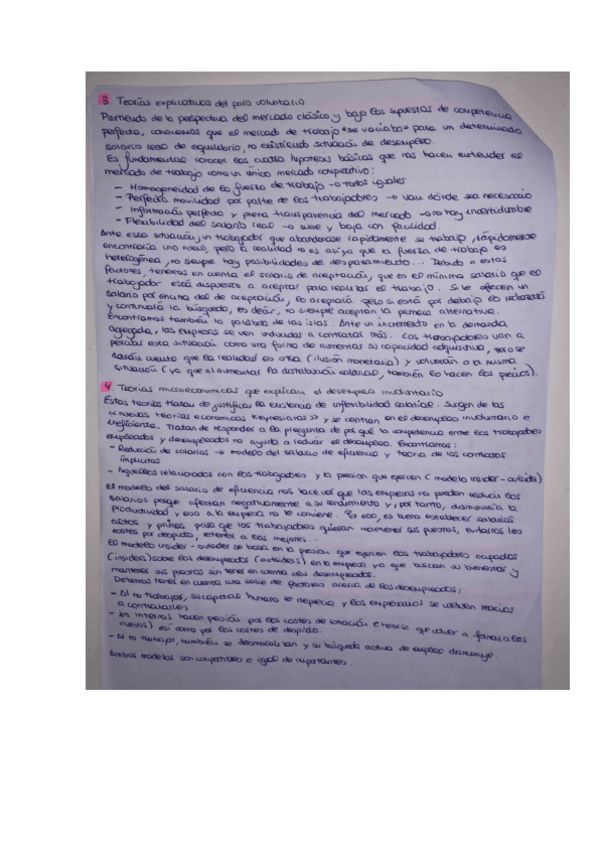 3. Teorías explicativas del paro voluntario
Partiendo de la perspectiva del mercado clásico y bajo los supuestos de competencia
perfecta, conocemos que el mercado de trabajo «se vaciaba» para un determinado
salario real de equilibrio, no existiendo situación de desempleo.
Es fundamental conocer las cuatro hipótesis básicas que nos hacen entender el
mercado de trabajo como un único mercado competitivo:
- Homogeneidad de la fuerza de trabajo → todos iguales
- Perfecta movilidad por parte de los trabajadores → van dónde sea necesario
- Información perfecta y plena transparencia del mercado → no hay incertidumbre
- Flexibilidad del salario real → sube y baja con facilidad.
Ante esta situación, un trabajador que abandonase rápidamente su trabajo, rápidamente
encontraría uno nuevo, pero la realidad no es así ya que la fuerza de trabajo es
heterogénea, no siempre hay posibilidades de desplazamiento... Debido a estos
factores, tenemos en cuenta el salario de aceptación, que es el mínimo salario que el
trabajador está dispuesto a aceptar para realizar el trabajo. Si le ofrecen un
salario por encima del de aceptación, lo aceptará pero si está por debajo lo rechazará
y continuará la búsqueda, es decir, no siempre aceptan la primera alternativa.
Encontramos también la parábola de las islas. Ante un incremento en la demanda
agregada, las empresas se ven inducidas a contratar más. Los trabajadores van a
percibir esta situación como una forma de aumentar su capacidad adquisitiva, pero se
darán cuenta que la realidad es otra (ilusión monetaria) y volverán a la misma
situación (ya que al aumentar la distribución salarial, también lo hacen los precios).
4. Teorías microeconómicas que explican el desempleo involuntario
Estas teorías tratan de justificar la existencia de inflexibilidad salarial. Surgen de las
«nuevas teorías económicas Keynesianas» y se centran en el desempleo involuntario e
ineficiente. Tratan de responder a la pregunta de por qué la competencia entre los trabajadores
empleados y desempleados no ayuda a reducir el desempleo. Encontramos:
- Reducción de salarios → modelo del salario de eficiencia y teoría de los contratos
implícitos
- Aquellos relacionados con los trabajadores y la presión que ejercen (modelo insider-outside)
El modelo del salario de eficiencia nos hace ver que las empresas no pueden reducir los
salarios porque afectan negativamente a su rendimiento y, por tanto, disminuiría la
productividad y eso a la empresa no le conviene. Por eso, es bueno establecer salarios
altos y primas para que los trabajadores quieran mantener sus puestos, evitarlos los
costes por despido, retener a los mejores...
El modelo insider-outsider se basa en la presión que ejercen los trabajadores ocupados
(insiders) sobre los desempleados (outsiders) en la empresa ya que buscan su bienestar y
mantener sus puestos sin tener en cuenta a los desempleados.
Debemos tener en cuenta una serie de factores acerca de los desempleados:
- Al no trabajar, su capital humano se deprecia y los empresarios se vuelven reacios
a contratarles
- Los internos hacen presión por los costes de rotación (habría que volver a formar a los
nuevos) así como por los costes de despido.
- Al no trabajar, también se desmoralizan y su búsqueda activa de empleo disminuye.
Ambos modelos son compatibles e igual de importantes.